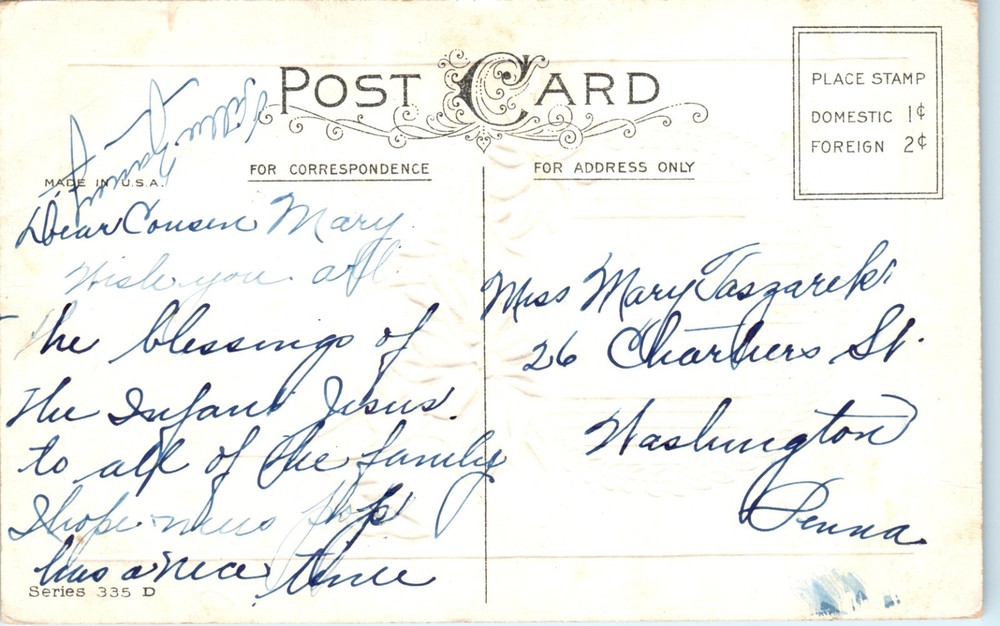 POST CARD
PLACE STAMP
DOMESTIC 1¢
FOREIGN 2¢
FOR CORRESPONDENCE
FOR ADDRESS ONLY
MADE IN U.S.A.
Dear Cousen Mary
Wish you all
the blessings of
the Infant Jesus.
to all of the family
I hope
has a nice time
Series 335 D
Miss Mary Taszareki
26 Chartiers St.
Washington
Penna.